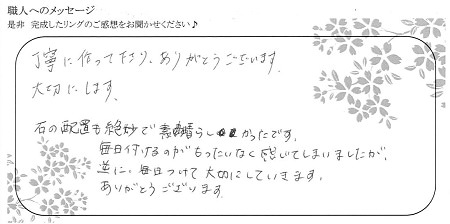 職人へのメッセージ
是非 完成したリングのご感想をお聞かせください♪
丁寧に作って下さり、ありがとうございます。
大切にします。
石の配置も絶妙で素晴らしかったです。
毎日付けるのがもったいなく感じてしまいましたが、
逆に、毎日つけて大切にしていきます。
ありがとうございます